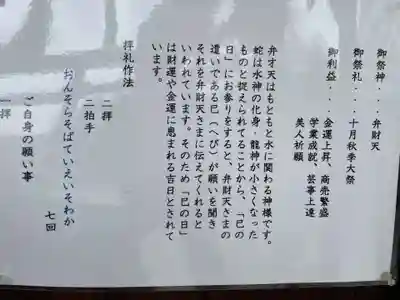 御祭神・・・・弁財天
御祭礼・・・・十月秋季大祭
御利益・・・・金運上昇、商売繁盛
学業成就、芸事上達
美人祈願
弁才天はもともと水に関わる神様です。
蛇は水神の化身・龍神が小さくなった
ものと捉えられてることから、「巳の
日」にお参りをすると、弁財天さまの
遣いである巳(へび)が願いを聞き
それを弁財天さまに伝えてくれると
いわれています。そのため「巳の日」
は財運や金運に恵まれる吉日とされて
います。
拝礼作法
二拝
二拍手
おんそらそばていえいそわか
七回
ご自身の願い事
一拝